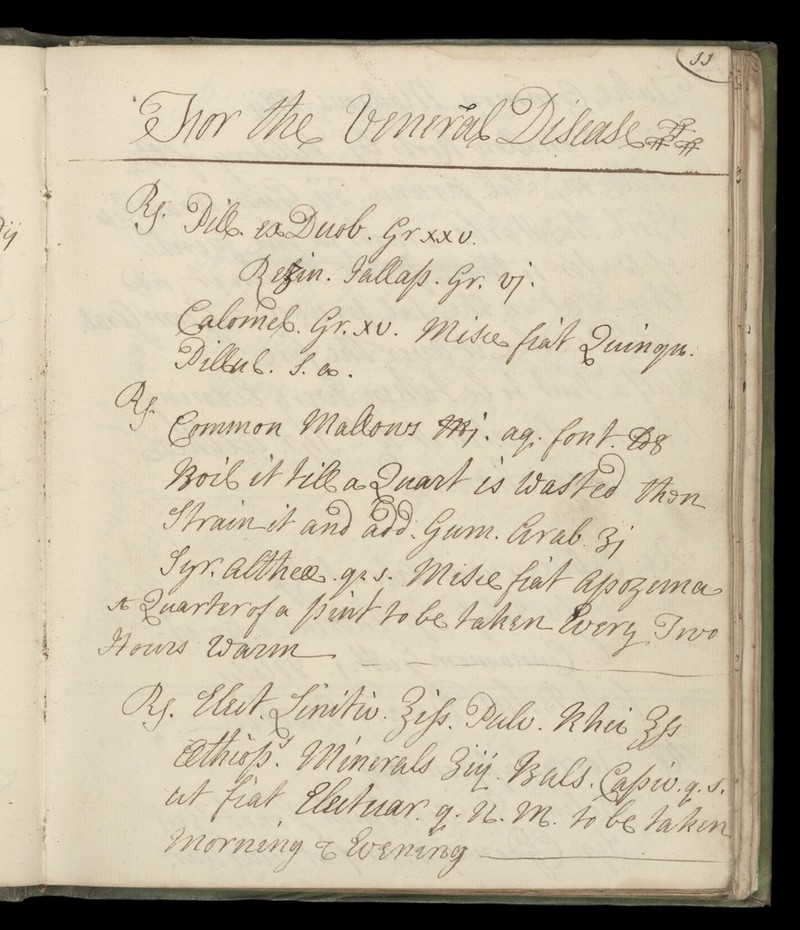 33
For the Veneral Disease
℞. Pill. ex Duob. Gr xxv.
Rezin. Jallap. Gr. vj.
Calomel. Gr. xv. Misce fiat Quinqu.
Pillul. S. a.
℞ Common Mallows Mj. aq. font. ℔8
Boil it till a Quart is Wasted then
Strain it and add. Gum. Arab. ʒj
Syr. altheæ. q. s. Misce fiat Apozema
A Quarter of a pint to be taken Every Two
Hours Warm
℞. Elect. Linitiv. ℥iſs. Pulv. Rhei ʒſs
Æthiops. Minerals ʒiij. Bals. Capiv. q. s.
ut fiat Electuar. q. N. M. to be taken
Morning & Evening